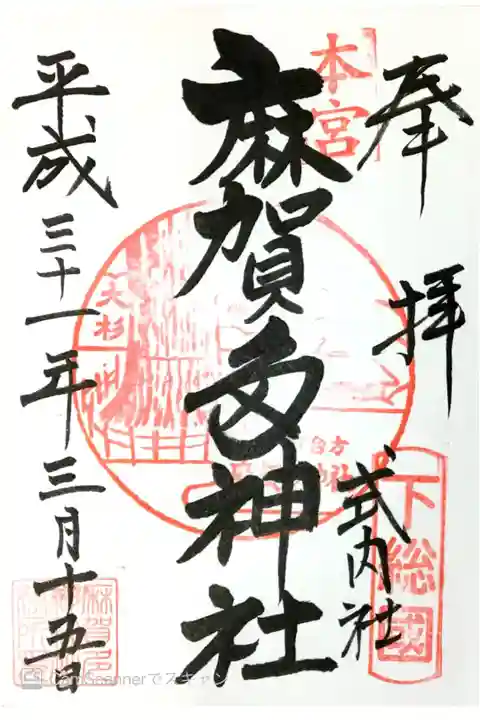 奉拝
本宮
式内社
下総國
麻賀多神社
大杉
平成三十一年三月十五日
麻賀多
CamScannerでスキャン